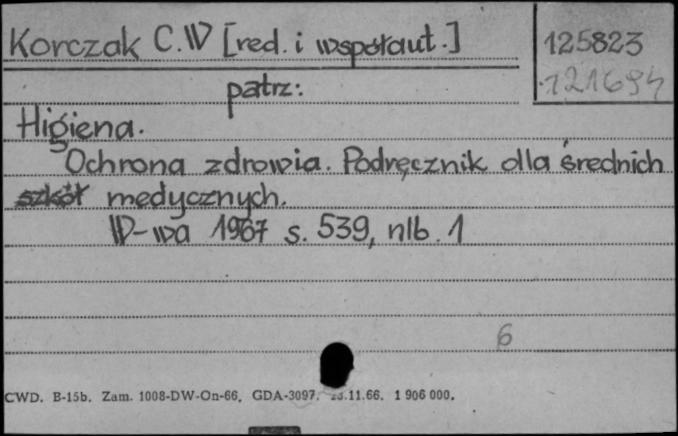 Korczak C.W [red. i współaut.]
125823
121694
patrz:
Higiena.
Ochrona zdrowia. Podręcznik dla średnich
szkół medycznych.
W-wa 1967 s. 539, nlb. 1
6
CWD. B-15b. Zam. 1008-DW-On-66. GDA-3097. .11.66. 1 906 000.